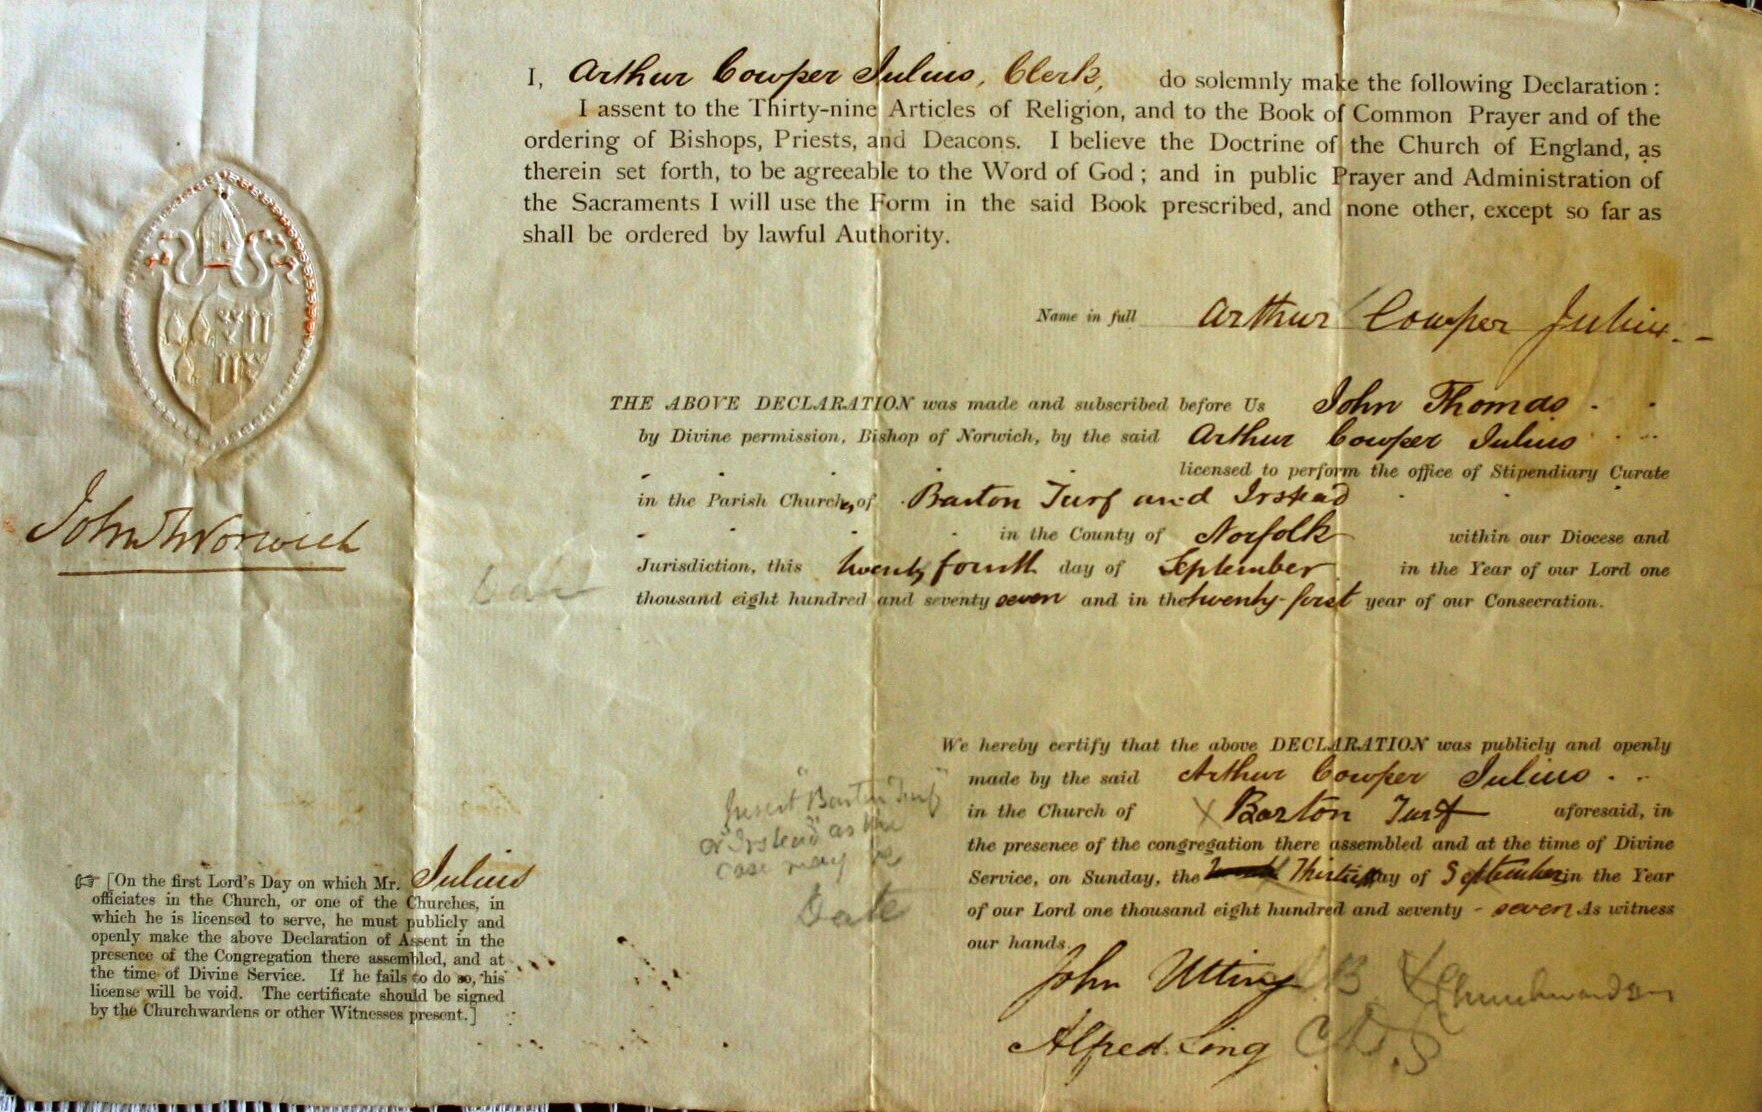 I, Arthur Cowper Julius, Clerk, do solemnly make the following Declaration :
I assent to the Thirty-nine Articles of Religion, and to the Book of Common Prayer and of the
ordering of Bishops, Priests, and Deacons. I believe the Doctrine of the Church of England, as
therein set forth, to be agreeable to the Word of God ; and in public Prayer and Administration of
the Sacraments I will use the Form in the said Book prescribed, and none other, except so far as
shall be ordered by lawful Authority.
Name in full Arthur Cowper Julius. -
THE ABOVE DECLARATION was made and subscribed before Us John Thomas
by Divine permission, Bishop of Norwich, by the said Arthur Cowper Julius
licensed to perform the office of Stipendiary Curate
in the Parish Churches, of Barton Turf and Irstead
in the County of Norfolk within our Diocese and
Jurisdiction, this twenty fourth day of September in the Year of our Lord one
thousand eight hundred and seventy seven and in the twenty-first year of our Consecration.
John T Norwich
Date
We hereby certify that the above DECLARATION was publicly and openly
made by the said Arthur Cowper Julius
in the Church of X Barton Turf aforesaid, in
the presence of the congregation there assembled and at the time of Divine
Service, on Sunday, the Thirtieth day of September in the Year
of our Lord one thousand eight hundred and seventy - seven As witness
our hands.
John Utting
Churchwardens
Alfred Ling
Insert "Barton Turf"
or "Irstead" as the
case may be
Date
[On the first Lord's Day on which Mr. Julius
officiates in the Church, or one of the Churches, in
which he is licensed to serve, he must publicly and
openly make the above Declaration of Assent in the
presence of the Congregation there assembled, and at
the time of Divine Service. If he fails to do so, his
license will be void. The certificate should be signed
by the Churchwardens or other Witnesses present.]